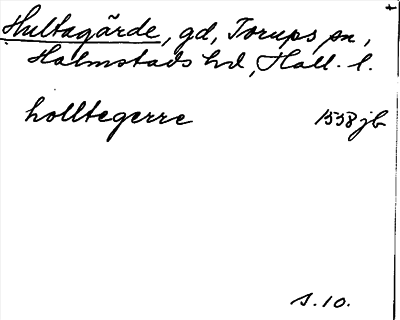 Hultagärde, gd, Torups sn,
Halmstads hd, Hall. l.
holltegerre 1538 jb
s. 10.